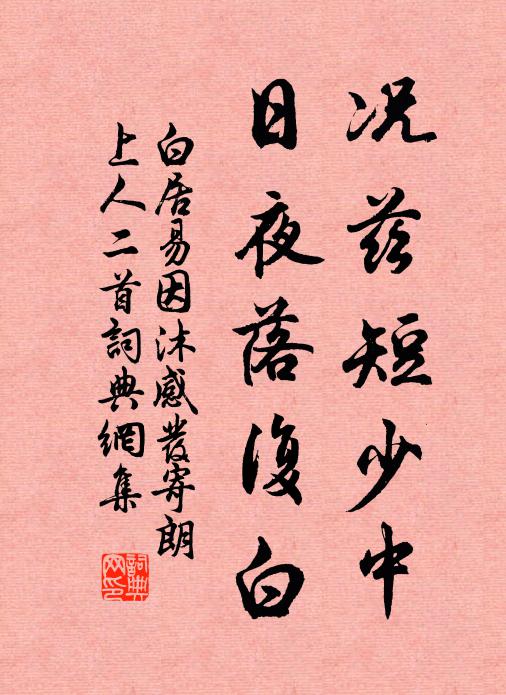 况兹短少中
日夜落復白
白居易因沐感發寄朗
上人二首詞典網集
詞典網印